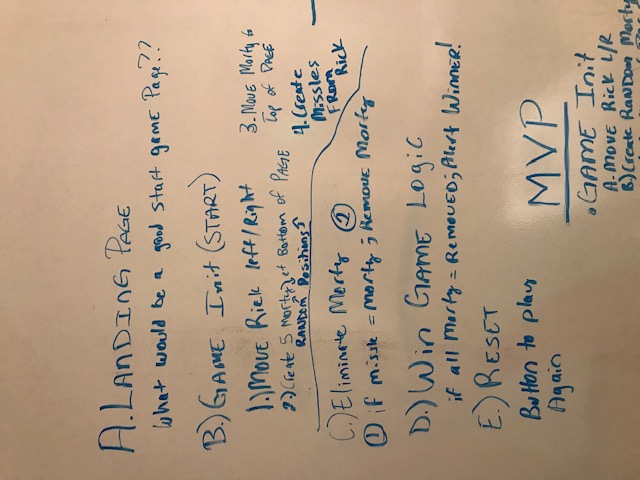 A. LANDING PAGE
What would be a good start game Page??
B.) GAME Init (START)
1.) MOVE Rick left/Right
2.) Create 5 Morty's at Bottom of PAGE
RANDOM Positions
3. MOVE Morty to
Top of PAGE
4. Create
Missles
FROM
Rick
C.) Eliminate Morty ②
① if missle = morty ; REMOVE Morty
D.) Win GAME Logic
if all Morty = REMOVED; Alert WINNER!
E.) RESET
Button to play
Again
MVP
• GAME Init
A. MOVE Rick L/R
B.) Create RANDOM Morty